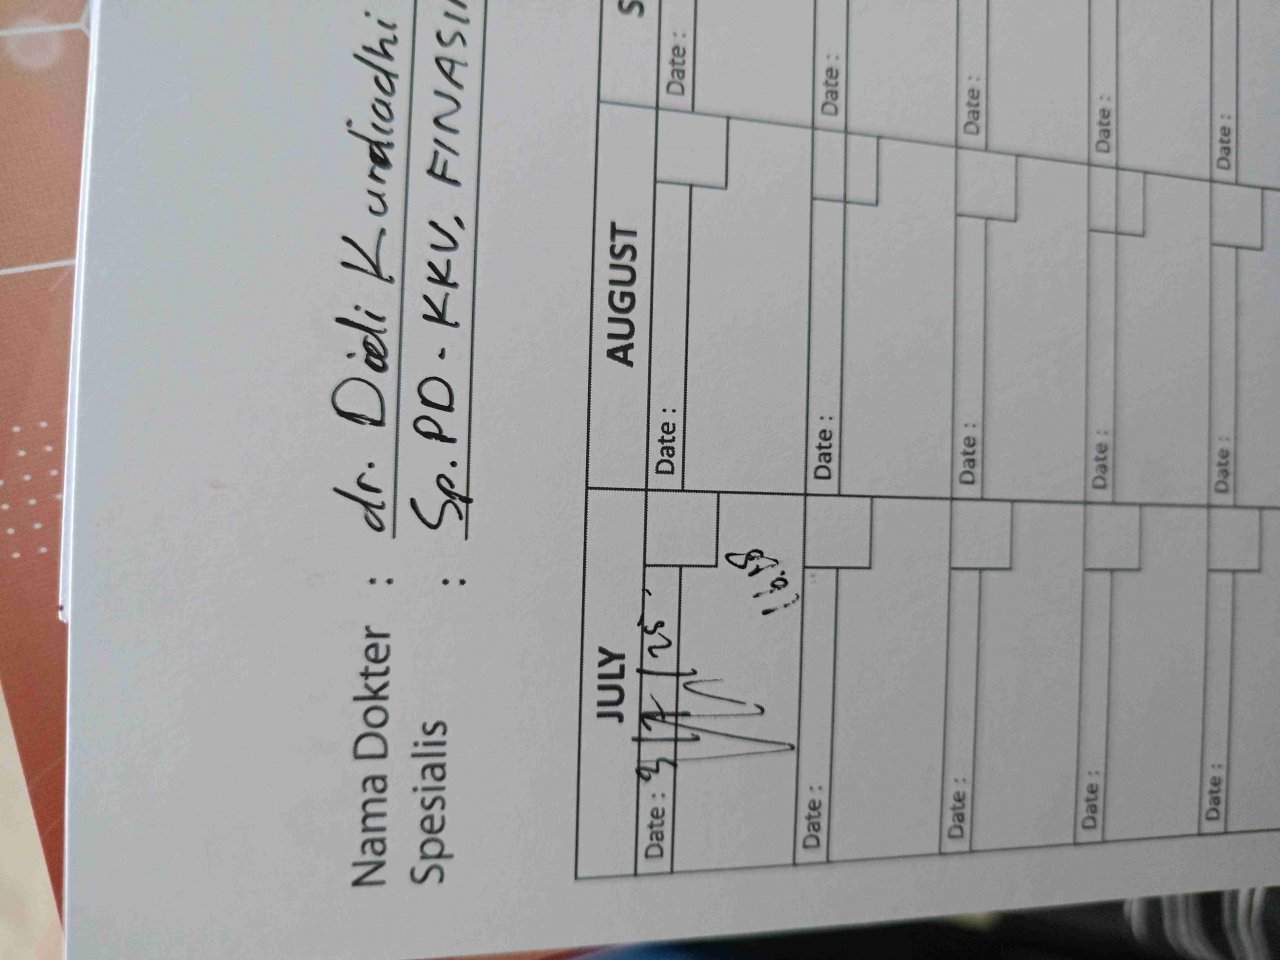 Nama Dokter : dr. Didi Kurdiadhi
Spesialis : Sp.PD - KKV, FINASI
JULY AUGUST S
Date : 3/7/25 Date : Date :
16.13
Date : Date : Date :
Date : Date : Date :
Date : Date : Date :
Date : Date : Date :